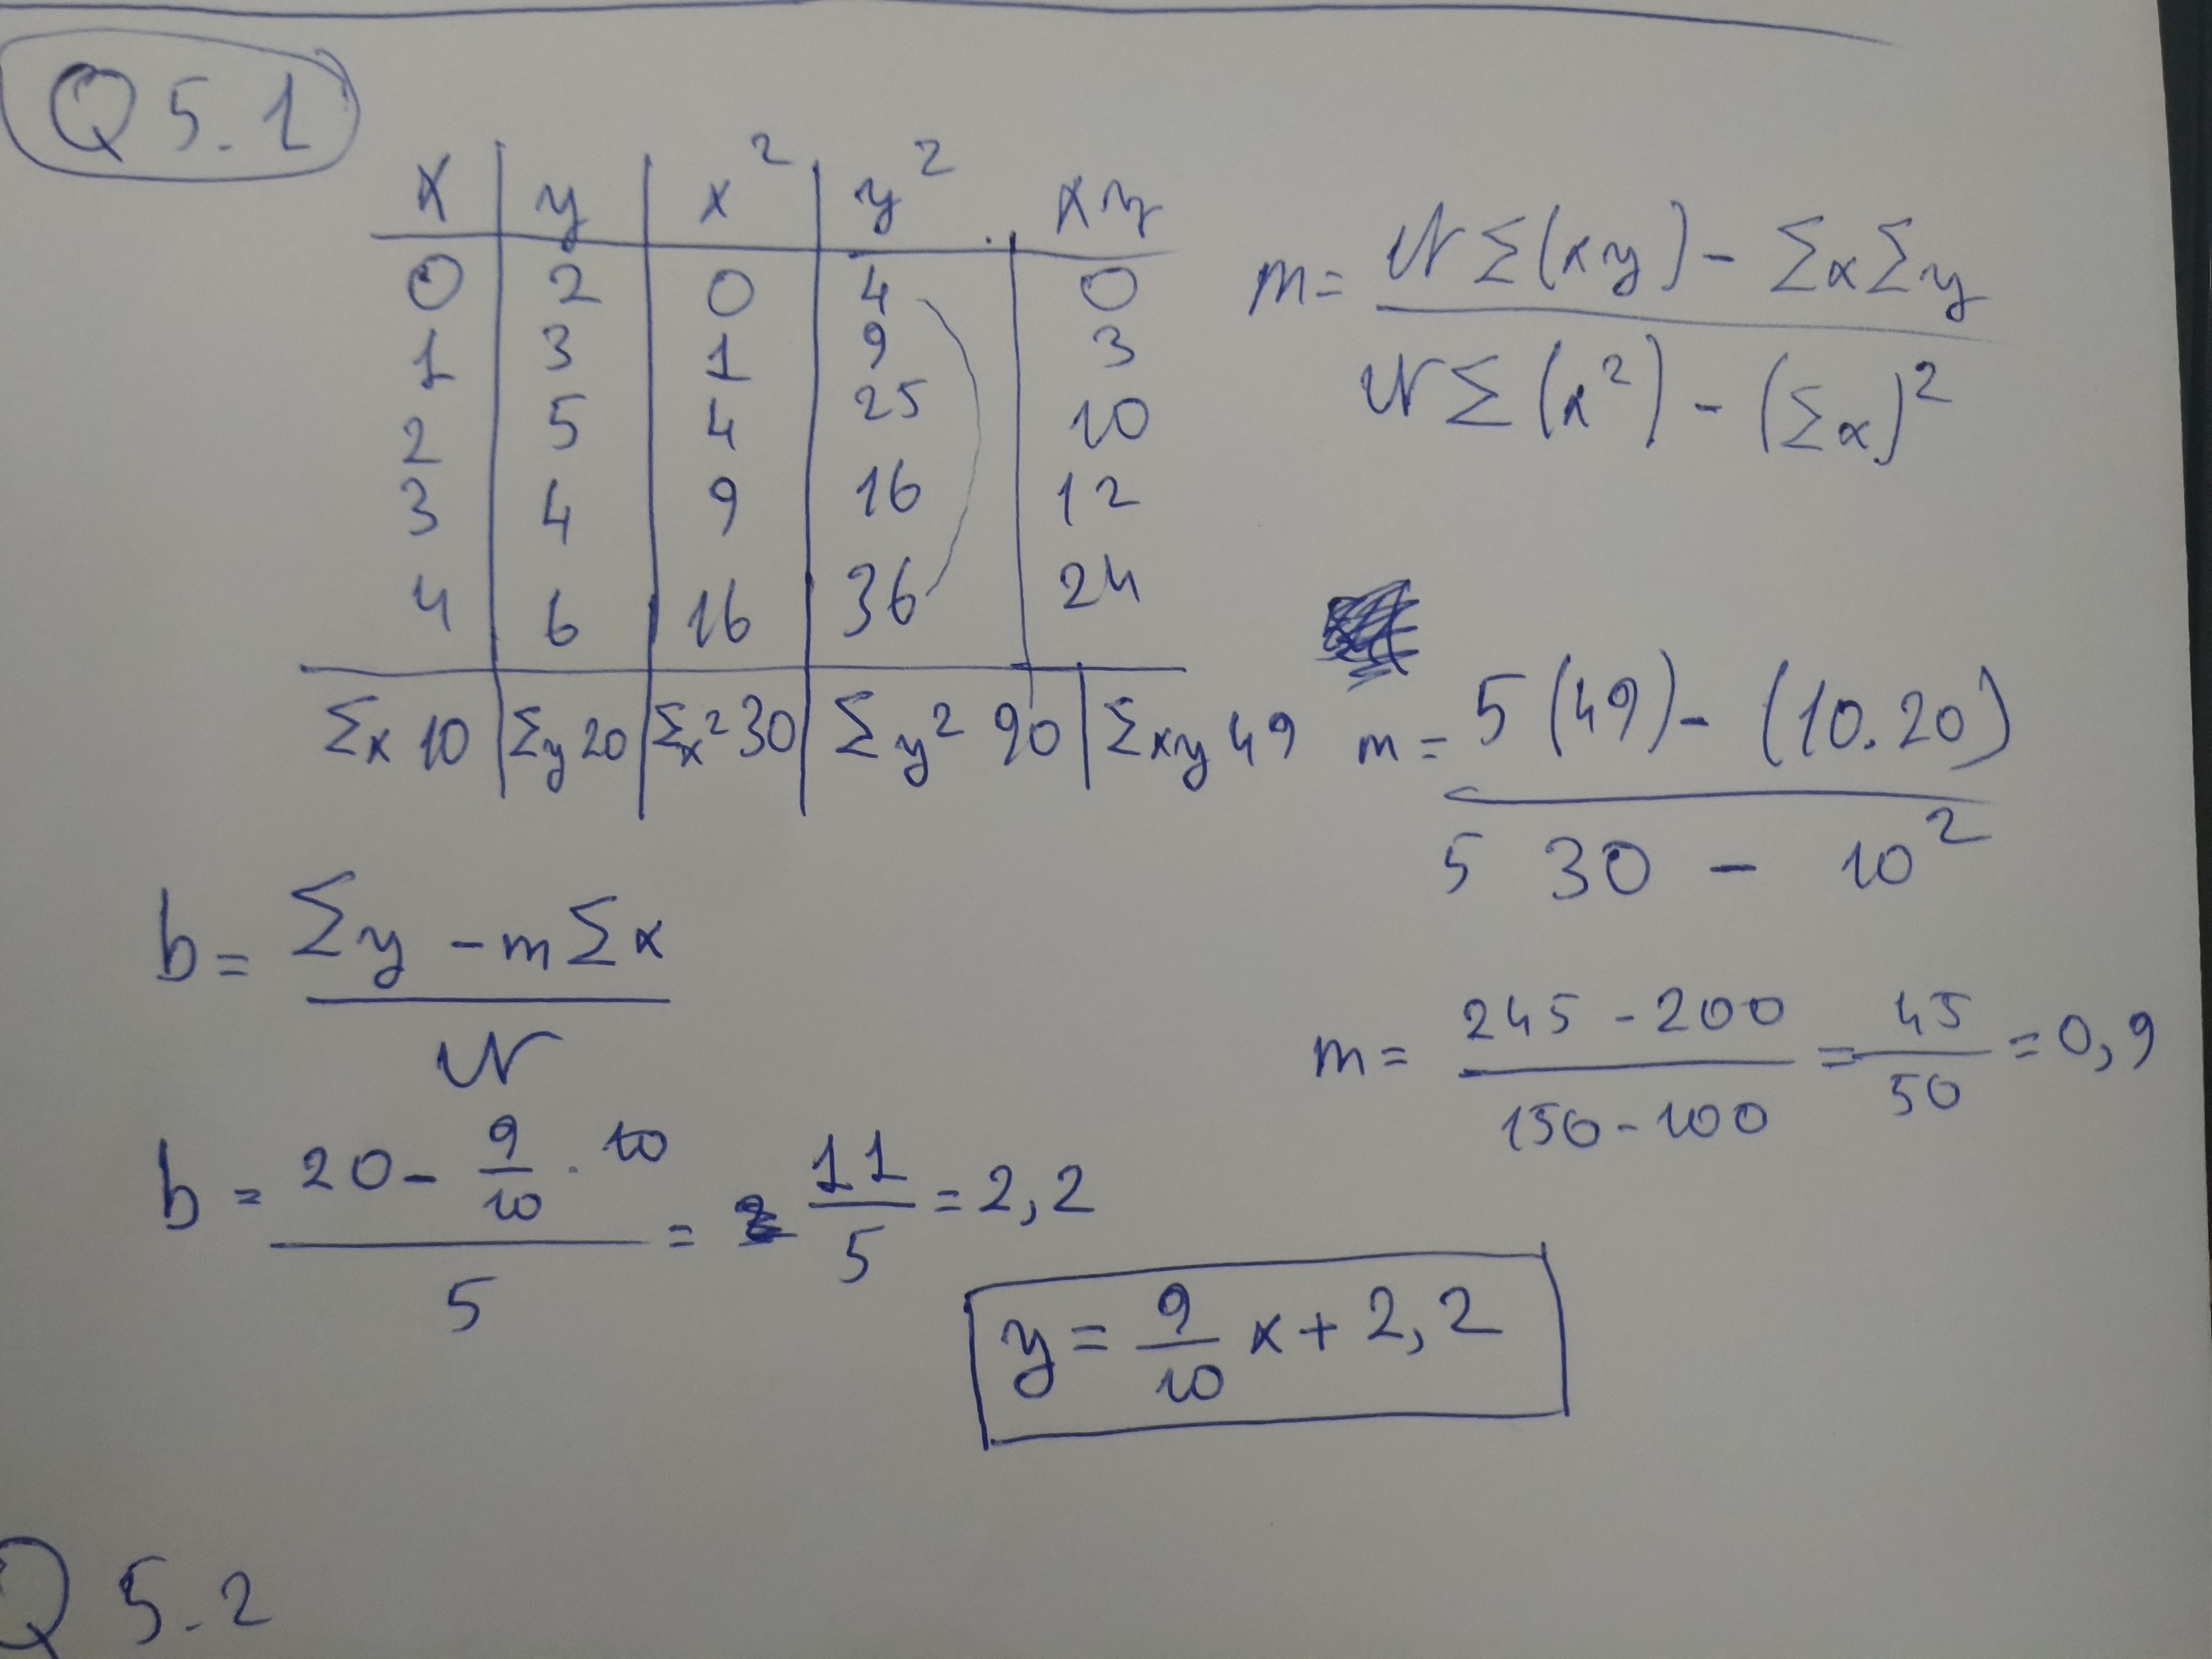 Q 5.1
x | y | x² | y² | xy
0 | 2 | 0 | 4 | 0
1 | 3 | 1 | 9 | 3
2 | 5 | 4 | 25 | 10
3 | 4 | 9 | 16 | 12
4 | 6 | 16 | 36 | 24
Σx 10 | Σy 20 | Σx² 30 | Σy² 90 | Σxy 49
m = N Σ(xy) - Σx Σy
N Σ(x²) - (Σx)²
m = 5 (49) - (10.20)
5 30 - 10²
m = 245 - 200 = 45 = 0,9
150 - 100 50
b = Σy - m Σx
N
b = 20 - 9/10 . 10 = 11/5 = 2,2
5
y = 9/10 x + 2,2
Q 5.2